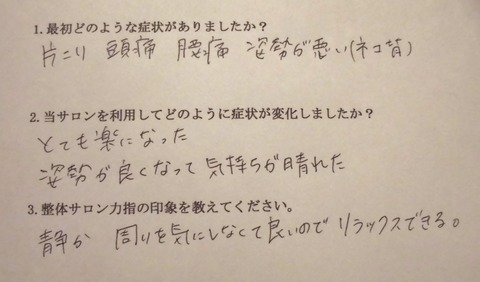 1.最初どのような症状がありましたか？
片こり 頭痛 腰痛 姿勢が悪い(ネコ背)
2.当サロンを利用してどのように症状が変化しましたか？
とても楽になった
姿勢が良くなって気持ちが晴れた
3.整体サロン力指の印象を教えてください。
静か 周りを気にしなくて良いのでリラックスできる。